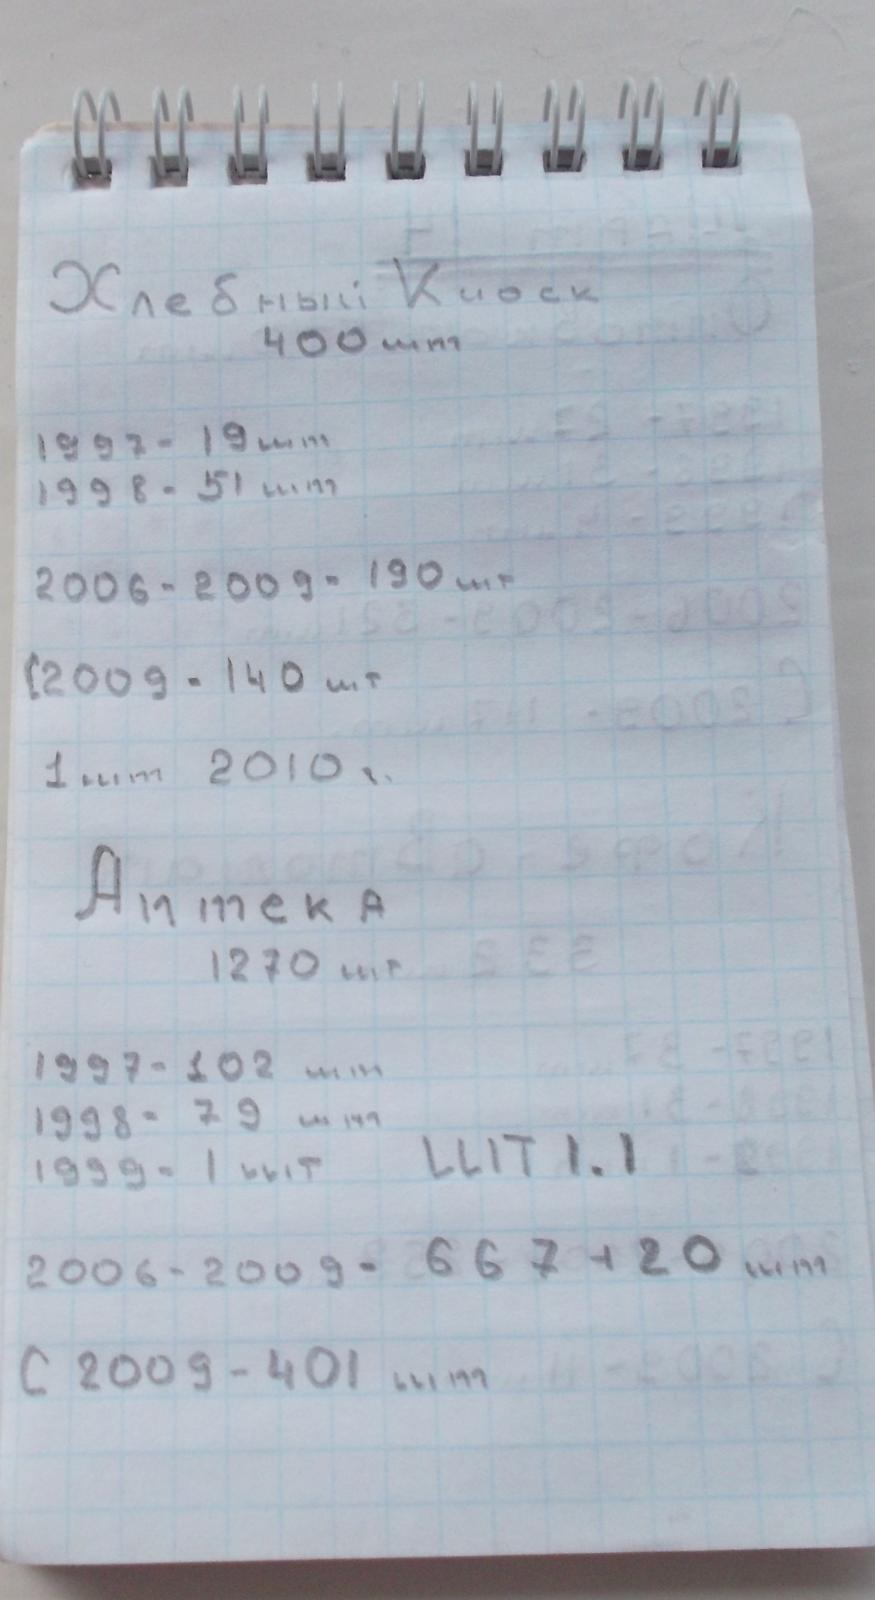 Хлебный Киоск
400 шт
1997- 19 шт
1998- 51 шт
2006-2009- 190 шт
С 2009- 140 шт
1 шт 2010 г.
Аптека
1270 шт
1997- 102 шт
1998- 79 шт
1999- 1 шт ШТ 1.1
2006-2009- 667+20 шт
С 2009-401 шт